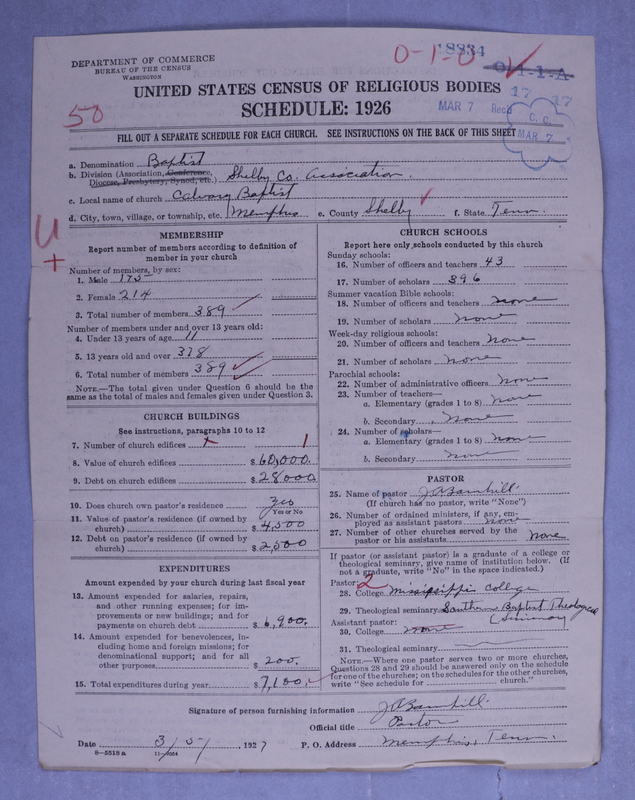 DEPARTMENT OF COMMERCE
BUREAU OF THE CENSUS
WASHINGTON
O-1-0
18834
O-1-1-A
17 17
UNITED STATES CENSUS OF RELIGIOUS BODIES
SCHEDULE: 1926
50
MAR 7 Rec'd
C. C.
MAR 7
FILL OUT A SEPARATE SCHEDULE FOR EACH CHURCH. SEE INSTRUCTIONS ON THE BACK OF THIS SHEET
a. Denomination Baptist
b. Division (Association, Conference, Diocese, Presbytery, Synod, etc.) Shelby Co. Association.
c. Local name of church Calvary Baptist
d. City, town, village, or township, etc. Memphis e. County Shelby f. State Tenn.
U
+
MEMBERSHIP
Report number of members according to definition of
member in your church
Number of members, by sex:
1. Male 175
2. Female 214
3. Total number of members 389
Number of members under and over 13 years old:
4. Under 13 years of age 11
5. 13 years old and over 378
6. Total number of members 389
NOTE.—The total given under Question 6 should be the
same as the total of males and females given under Question 3.
CHURCH BUILDINGS
See instructions, paragraphs 10 to 12
7. Number of church edifices 1
8. Value of church edifices $60,000.
9. Debt on church edifices $28000.
10. Does church own pastor's residence yes
Yes or No
11. Value of pastor's residence (if owned by
church) $4,500
12. Debt on pastor's residence (if owned by
church) $2,500
EXPENDITURES
Amount expended by your church during last fiscal year
13. Amount expended for salaries, repairs,
and other running expenses; for im-
provements or new buildings; and for
payments on church debt $6,900.
14. Amount expended for benevolences, in-
cluding home and foreign missions; for
denominational support; and for all
other purposes $200.
15. Total expenditures during year $7,100.
CHURCH SCHOOLS
Report here only schools conducted by this church
Sunday schools:
16. Number of officers and teachers 43
17. Number of scholars 396
Summer vacation Bible schools:
18. Number of officers and teachers none
19. Number of scholars none
Week-day religious schools:
20. Number of officers and teachers none
21. Number of scholars none
Parochial schools:
22. Number of administrative officers none
23. Number of teachers—
a. Elementary (grades 1 to 8) none
b. Secondary none
24. Number of scholars—
a. Elementary (grades 1 to 8) none
b. Secondary none
PASTOR
25. Name of pastor J A Barnhill
(If church has no pastor, write "None")
26. Number of ordained ministers, if any, em-
ployed as assistant pastors none
27. Number of other churches served by the
pastor or his assistants none
If pastor (or assistant pastor) is a graduate of a college or
theological seminary, give name of institution below. (If
not a graduate, write "No" in the space indicated.)
Pastor: 2
28. College Mississippi College
29. Theological seminary Southern Baptist Theological
Assistant pastor: (Seminary
30. College none
31. Theological seminary
NOTE.—Where one pastor serves two or more churches,
Questions 28 and 29 should be answered only on the schedule
for one of the churches; on the schedules for the other churches,
write "See schedule for church."
Signature of person furnishing information J A Barnhill
Official title Pastor
Date 3/5/, 1927 P. O. Address Memphis, Tenn.
8—5518 a